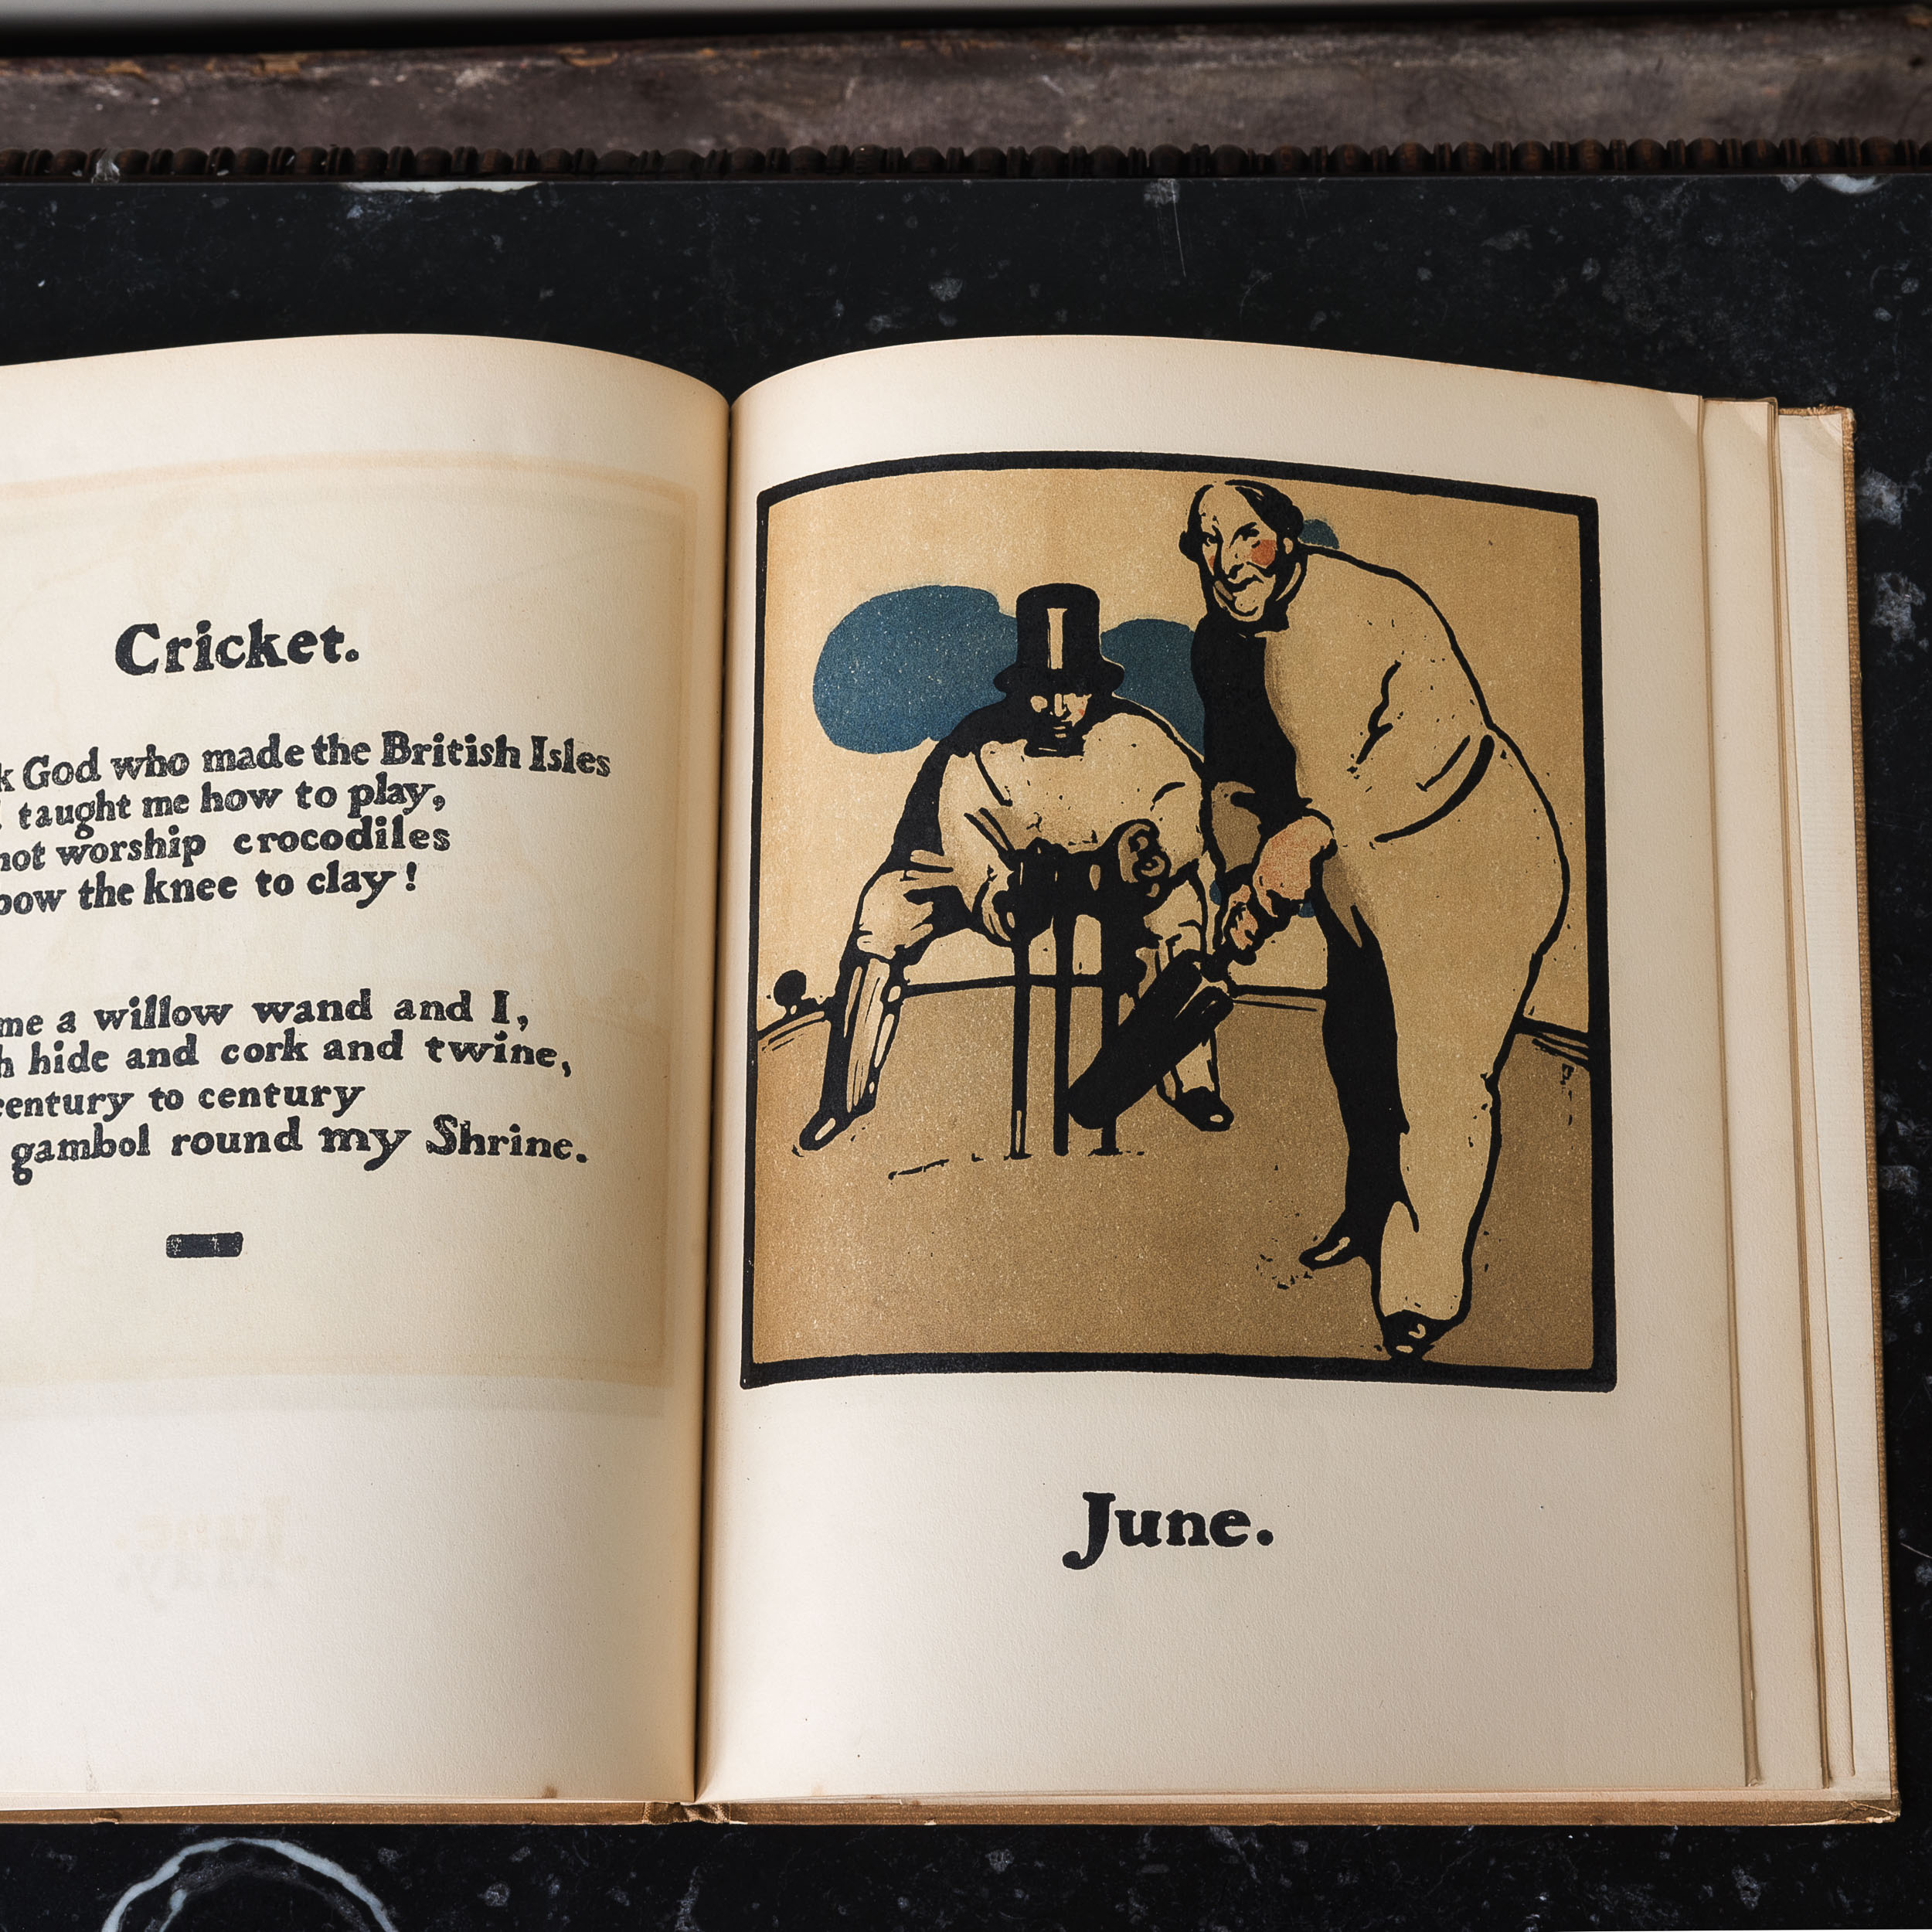 Cricket.
k God who made the British Isles
taught me how to play,
not worship crocodiles
bow the knee to clay!
me a willow wand and I,
h hide and cork and twine,
century to century
gambol round my Shrine.
June.